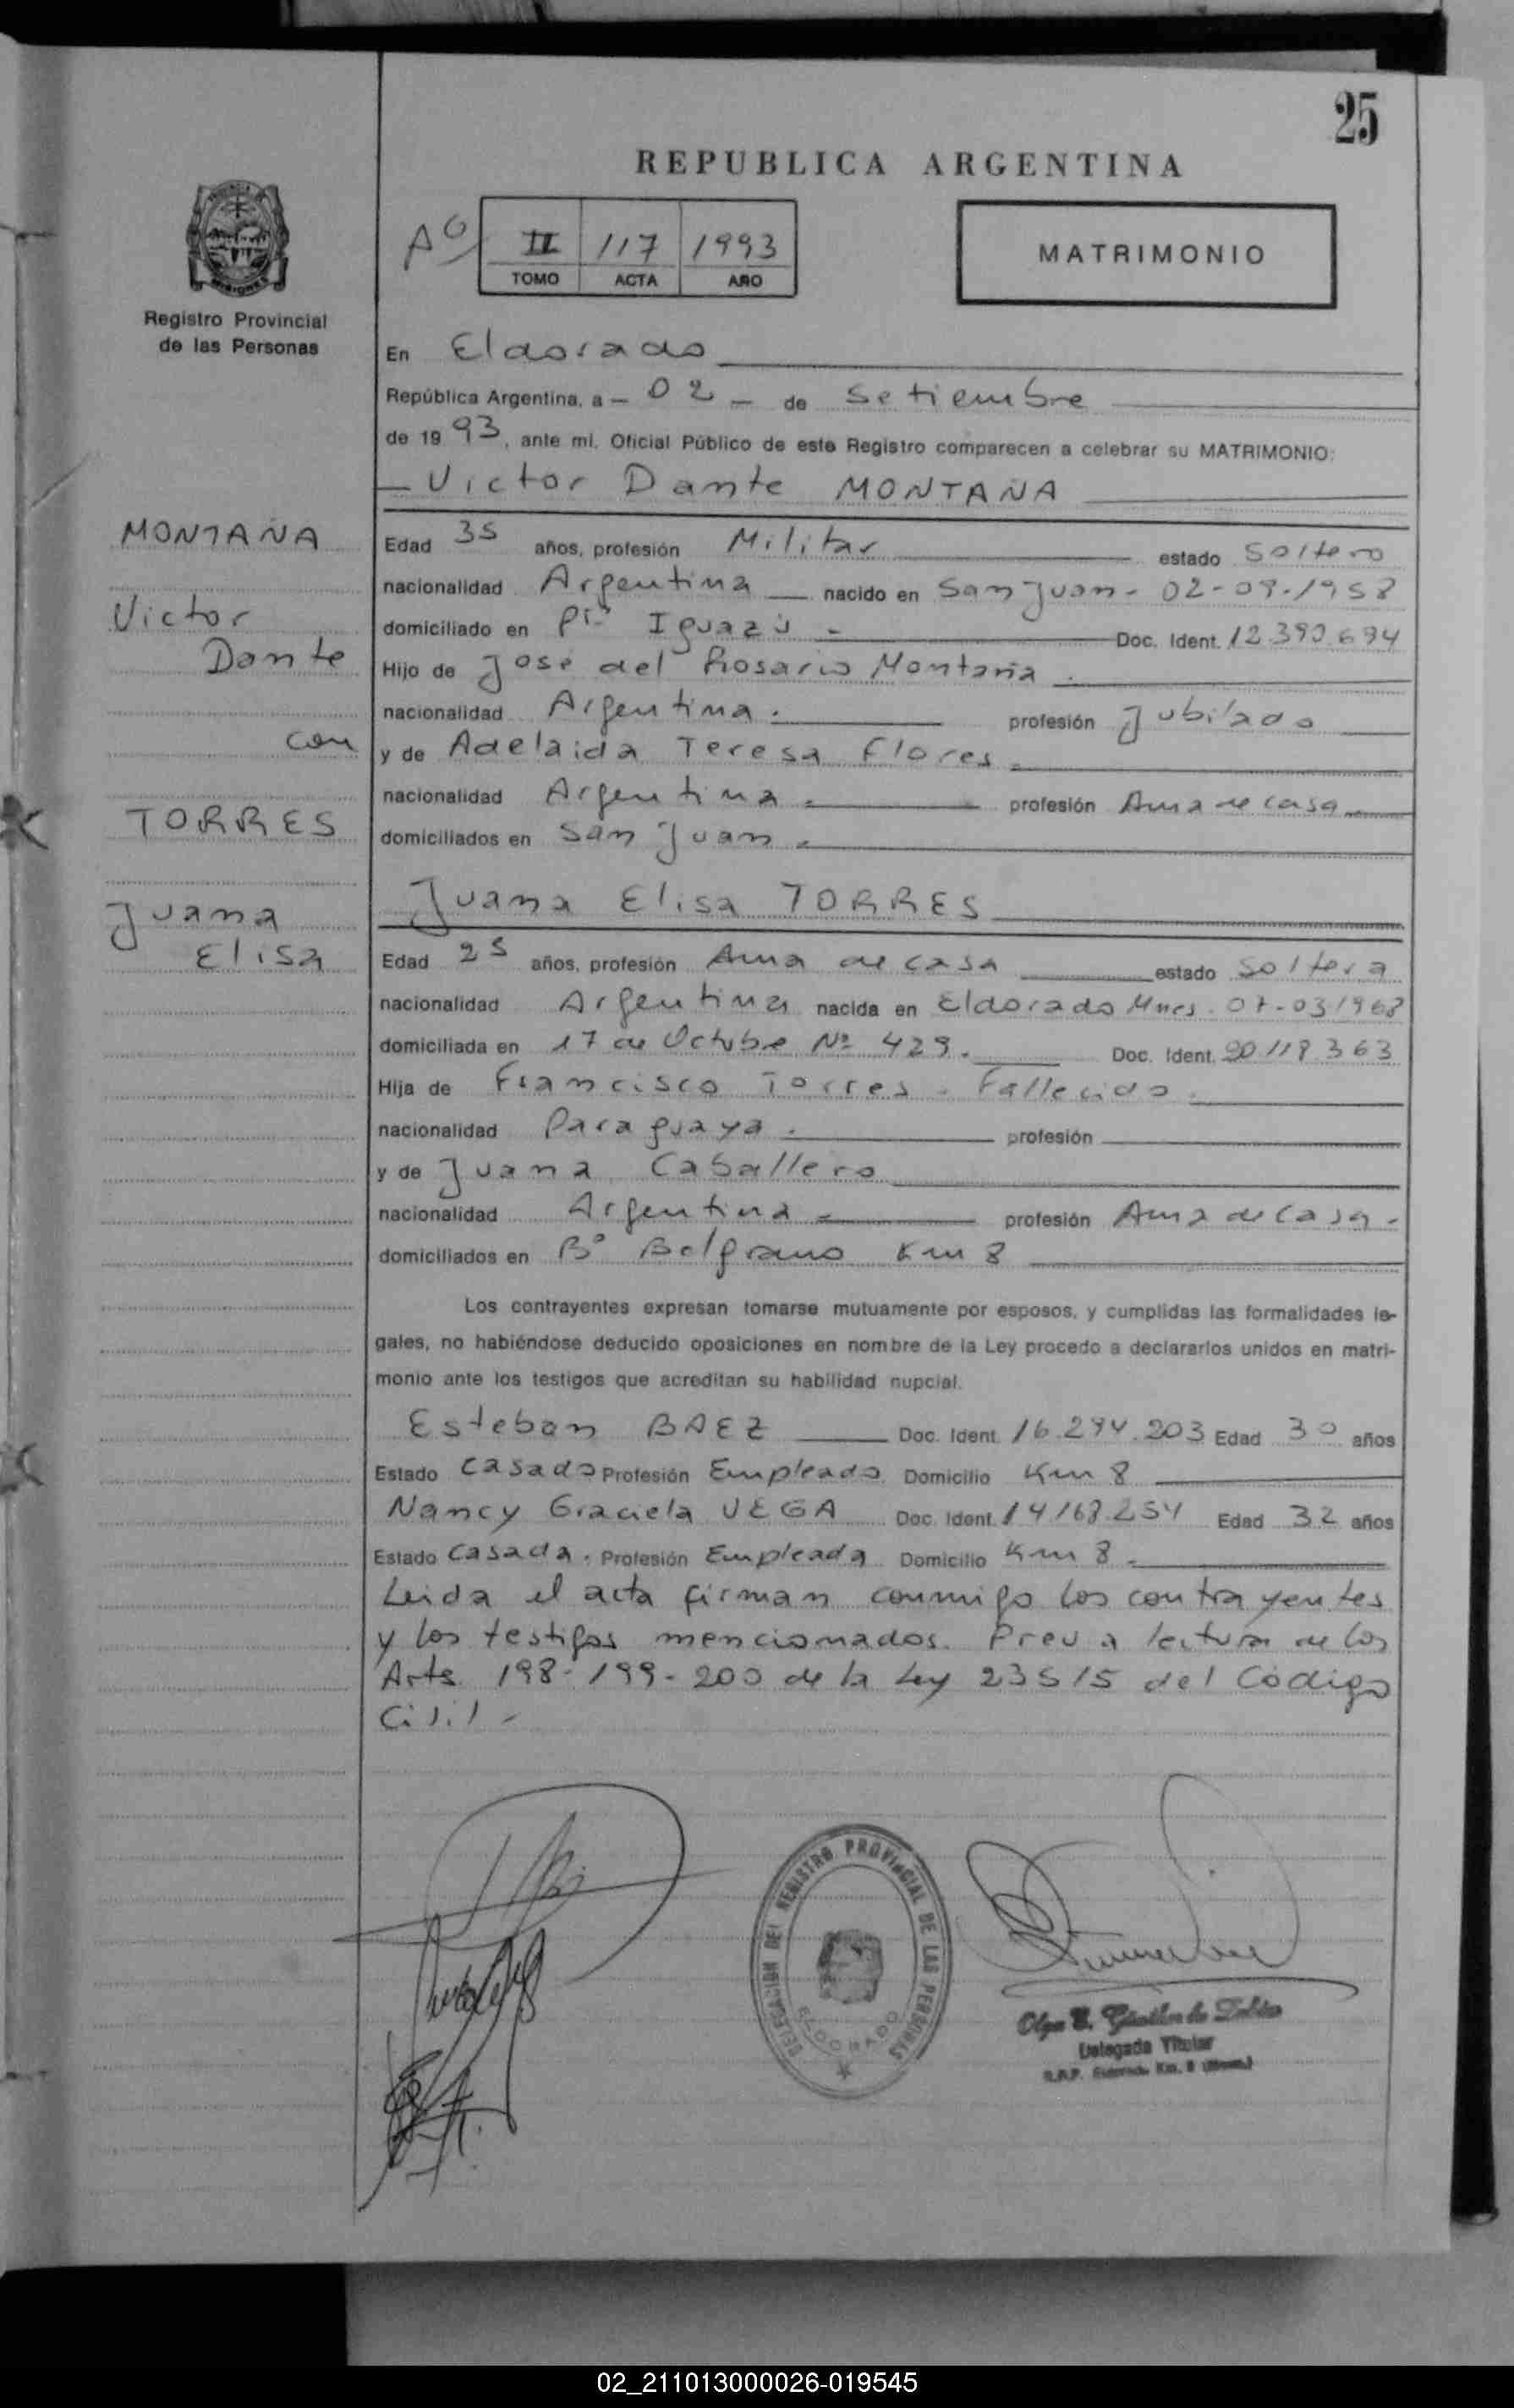 25
REPUBLICA ARGENTINA
II 117 1993
TOMO ACTA AÑO
MATRIMONIO
Registro Provincial
de las Personas
En Eldorado
República Argentina, a - 02 - de Setiembre
de 1993, ante mí, Oficial Público de este Registro comparecen a celebrar su MATRIMONIO:
- Victor Dante MONTAÑA
MONTAÑA
Victor
Dante
con
TORRES
Juana
Elisa
Edad 35 años, profesión Militar estado Soltero
nacionalidad Argentina nacido en San Juan - 02-09-1958
domiciliado en Pto Iguazú - Doc. Ident. 12.390.694
Hijo de José del Rosario Montaña.
nacionalidad Argentina. profesión Jubilado
y de Adelaida Teresa Flores.
nacionalidad Argentina. profesión Ama de casa
domiciliados en San Juan.
Juana Elisa TORRES
Edad 25 años, profesión Ama de casa estado Soltera
nacionalidad Argentina nacida en Eldorado Mnes. 07-03-1968
domiciliada en 17 de Octubre Nº 429. Doc. Ident. 20.118.363
Hija de Francisco Torres - Fallecido.
nacionalidad Paraguaya. profesión
y de Juana Caballero
nacionalidad Argentina - profesión Ama de casa -
domiciliados en Bº Belgrano Km 8
Los contrayentes expresan tomarse mutuamente por esposos, y cumplidas las formalidades le-
gales, no habiéndose deducido oposiciones en nombre de la Ley procedo a declararlos unidos en matri-
monio ante los testigos que acreditan su habilidad nupcial.
Esteban BAEZ Doc. Ident. 16.294.203 Edad 30 años
Estado Casado Profesión Empleado Domicilio Km 8
Nancy Graciela VEGA Doc. Ident. 14168.254 Edad 32 años
Estado Casada. Profesión Empleada Domicilio Km 8.
Leida el acta firman conmigo los contrayentes
y los testigos mencionados. Previa lectura de los
Arts. 198-199-200 de la Ley 23515 del Código
Civil -
DELEGACION DEL REGISTRO PROVINCIAL DE LAS PERSONAS
ELDORADO
Olga
Delegada Titular
02_211013000026-019545